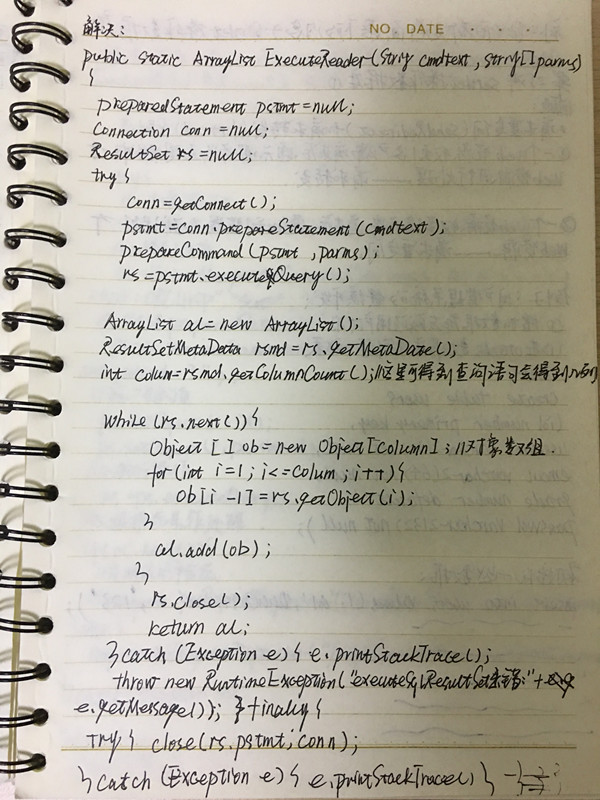 NO. DATE
解决:
public static ArrayList ExecuteReader(String cmdtext, string[] parms)
{
preparedStatement pstmt = null;
Connection conn = null;
ResultSet rs = null;
try {
conn = getConnect();
pstmt = conn.prepareStatement (cmdtext);
prepareCommand (pstmt, parms);
rs = pstmt.executeQuery();
ArrayList al = new ArrayList();
ResultSetMetaData rsmd = rs.getMetaDate();
int colun = rsmd.getColumnCount(); //这里可得到查询语句会得到几列
while (rs.next()) {
Object [] ob = new Object[column]; //对象数组.
for (int i=1; i<=colum; i++) {
ob[i -1] = rs.getObject(i);
}
al.add(ob);
}
rs.close();
return al;
} catch (Exception e) { e.printStackTrace();
throw new RuntimeException("executeSqlResultSet未错:" +
e.getMessage()); } finally {
try { close(rs.pstmt, conn);
} catch (Exception e) { e.printStackTrace() }